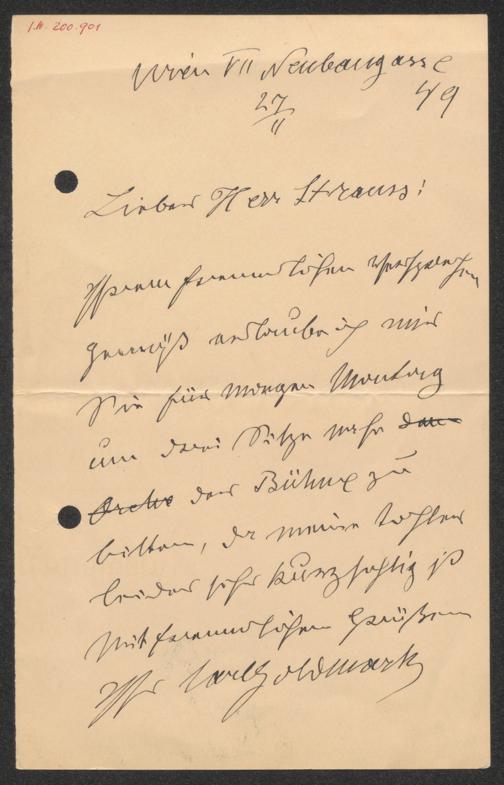 I.N. 200.901
Wien VII Neubaugasse
49
27/II
Lieber Herr Strauss!
Ihrem freundlichen Versprechen
gemäß erlaube ich mir
Sie für morgen Montag
um drei Sitze nahe dem
Orche der Bühne zu
bitten, da meine Tochter
leider sehr kurzsichtig ist
Mit freundlichen Grüßen
Ihr Carl Goldmark